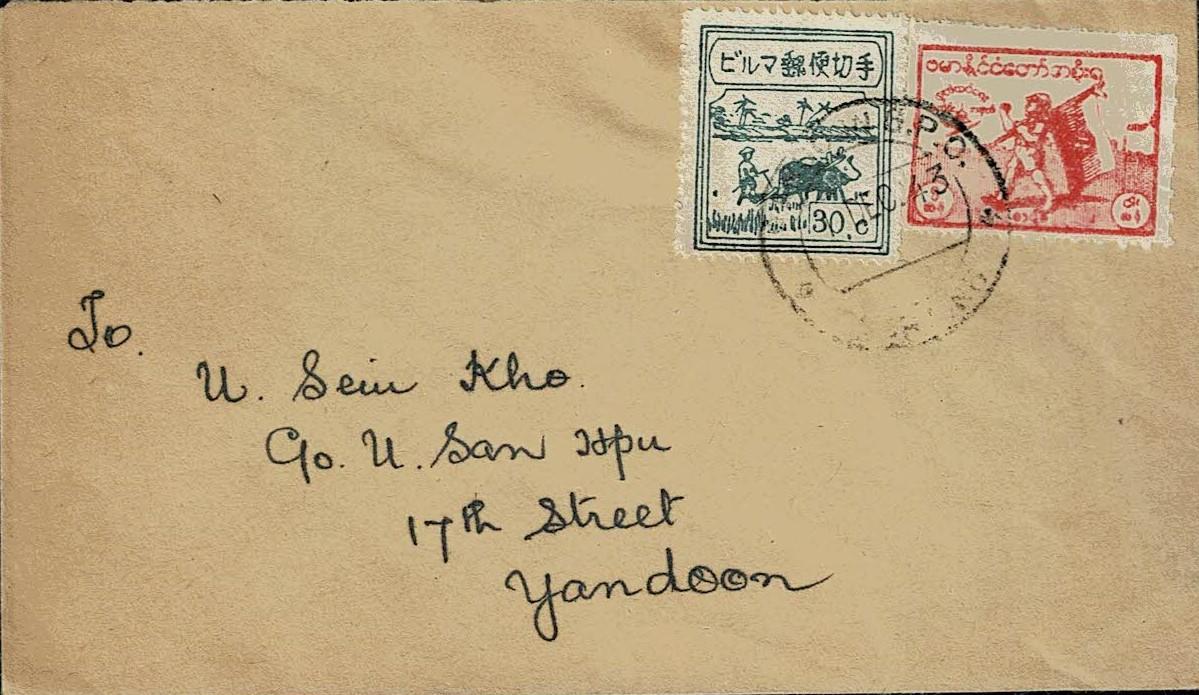 ビルマ郵便切手
30.c
ဗမာနိုင်ငံတော်အစိုးရ
G.P.O.
43
To.
U. Sein Kho.
C/o. U. San Hpu
17th Street
Yandoon